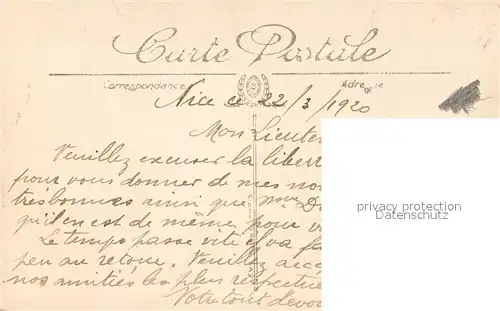 Carte Postale
Correspondance
Adresse
Nice le 22/3/1920
Mon Lieuten
Veuillez excuser la libert
pour vous donner de mes nou
très bonnes ainsi que Mme D
qu'il en est de même pour v
Le temps passe vite et va fa
peu au retour. Veuillez acc
nos amitiés les plus respectue
Votre tout devou
privacy protection
Datenschutz